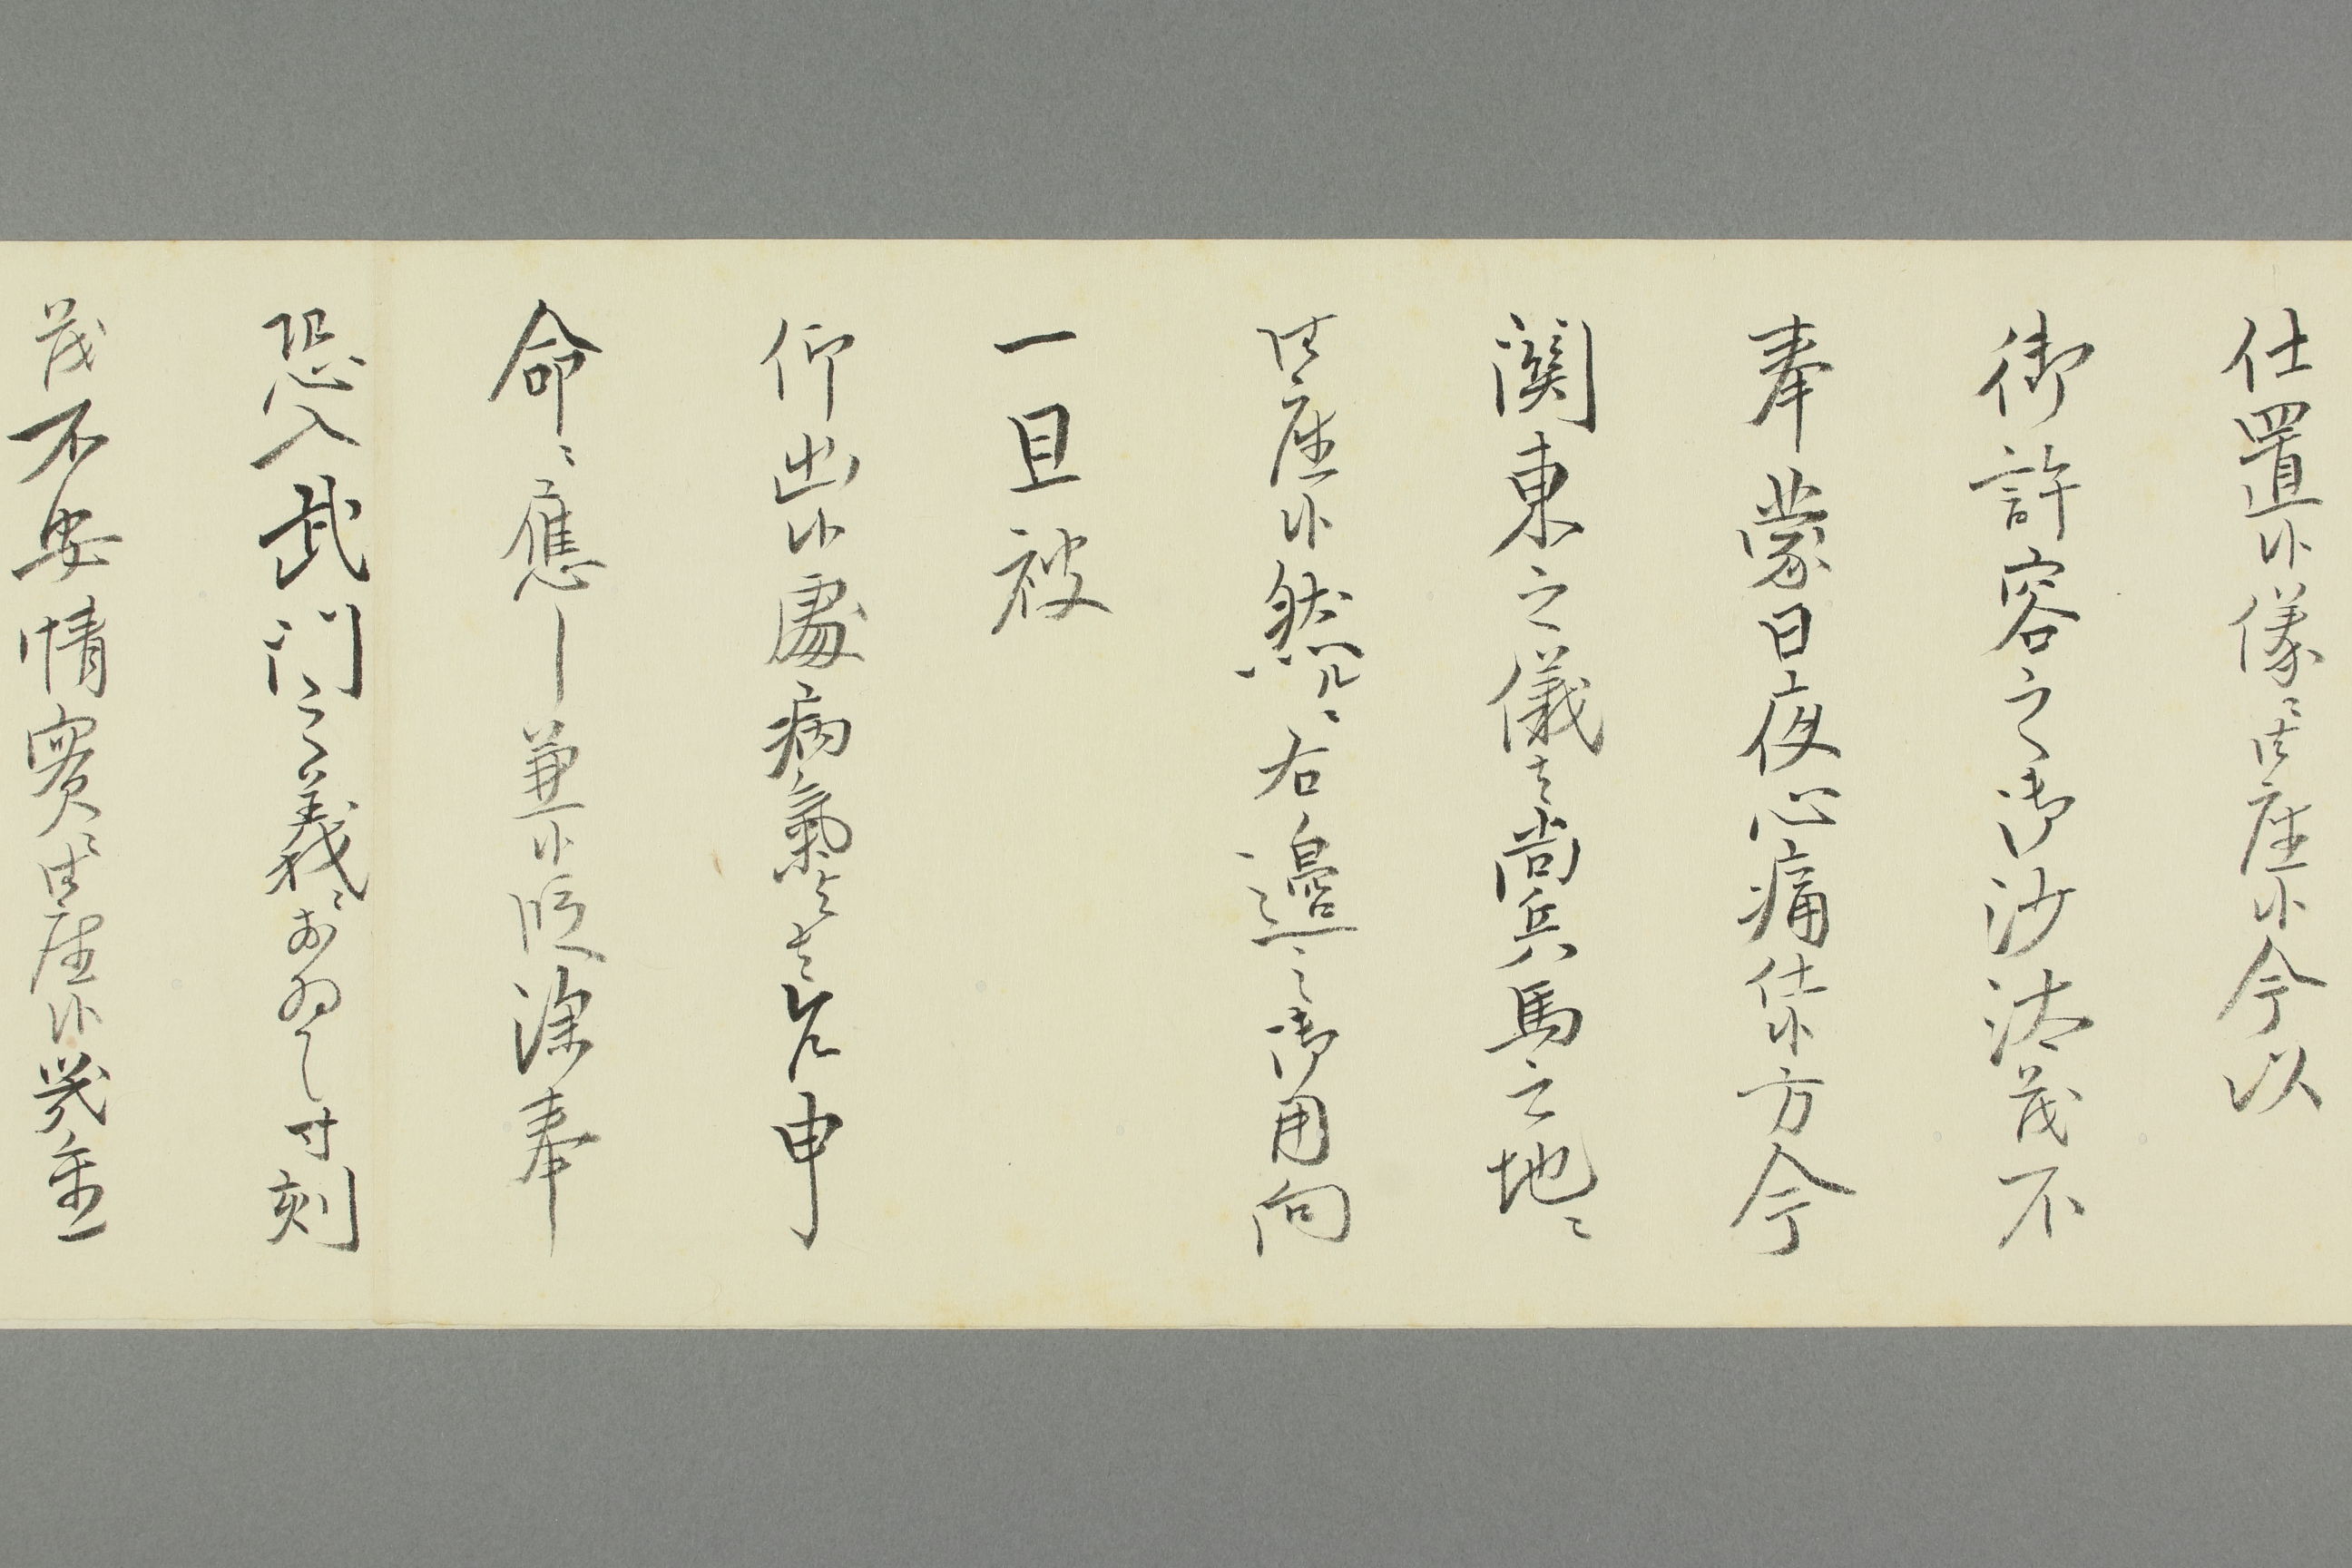 仕置候儀ニ御座候今以
御許容之御沙汰茂不
奉蒙日夜心痛仕候方今
関東之儀者尚兵馬之地ニ
御座候然ルニ右邊之御用向
一旦被
仰出候處病氣与者乍申
命ニ應し兼候段深奉
恐入武門之義ニおゐて寸刻
茂不安情實ニ御座候幾重